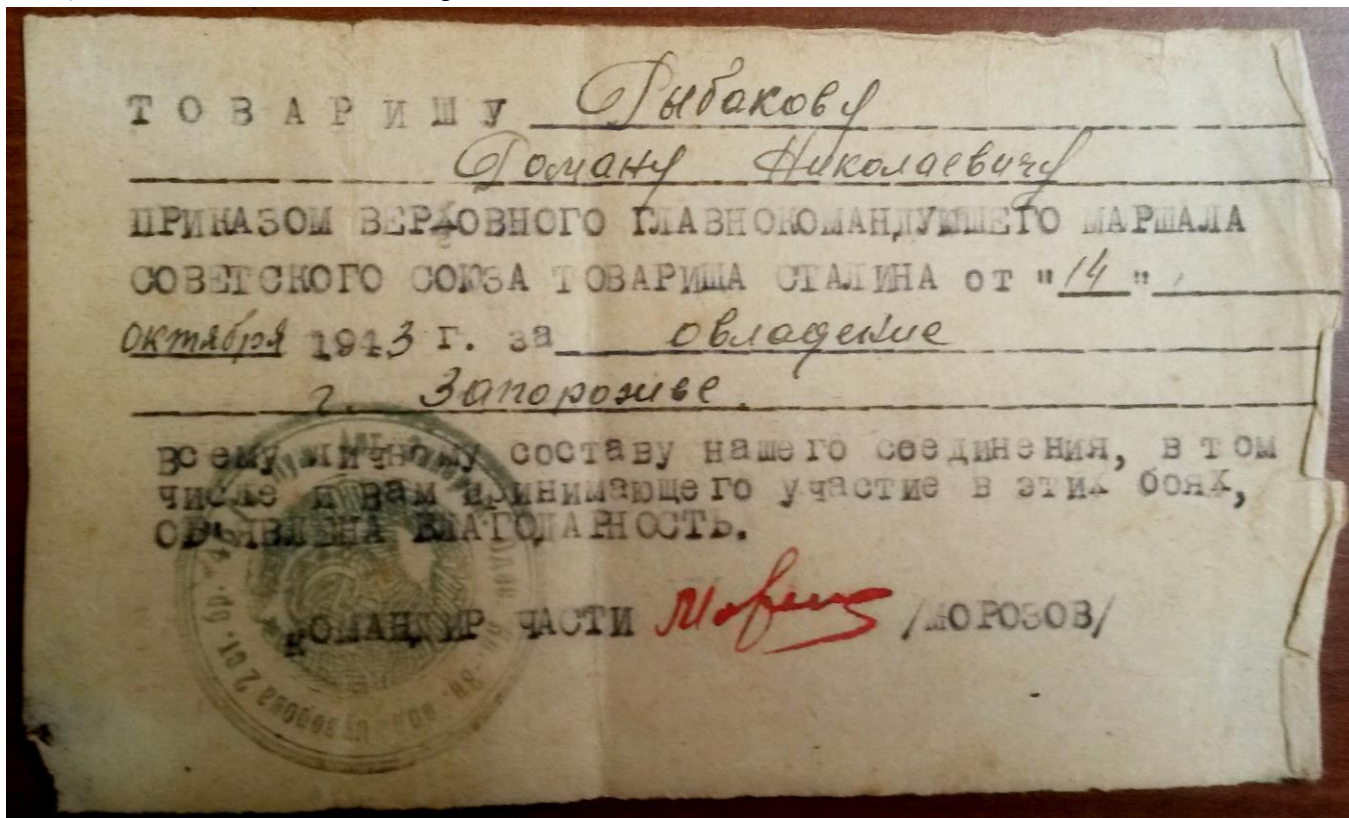 ТОВАРИШУ Рыбакову
Роману Николаевичу
ПРИКАЗОМ ВЕРХОВНОГО ГЛАВНОКОМАНДУЮЩЕГО МАРШАЛА
СОВЕТСКОГО СОЮЗА ТОВАРИЩА СТАЛИНА от "14"
октября 1943 г. за овладение
г. Запорожье.
всему личному составу нашего соединения, в том
числе и вам принимающего участие в этих боях,
ОБЪЯВЛЕНА БЛАГОДАРНОСТЬ.
КОМАНДИР ЧАСТИ /МОРОЗОВ/
Суворова 2 ст.